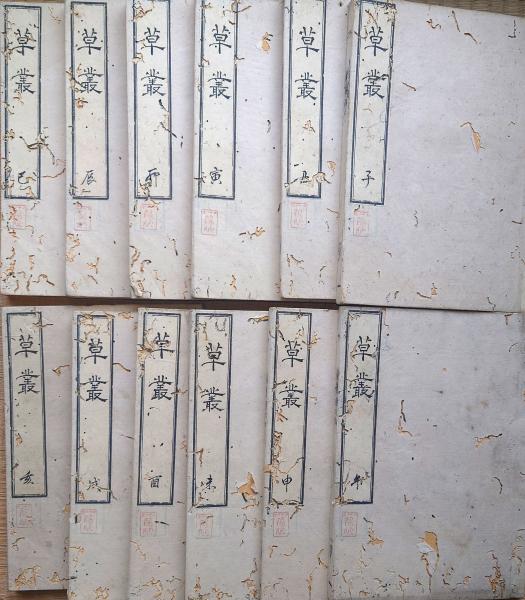 草叢 子
草叢 丑
草叢 寅
草叢 卯
草叢 辰
草叢 巳
草叢 午
草叢 申
草叢 未
草叢 酉
草叢 戌
草叢 亥